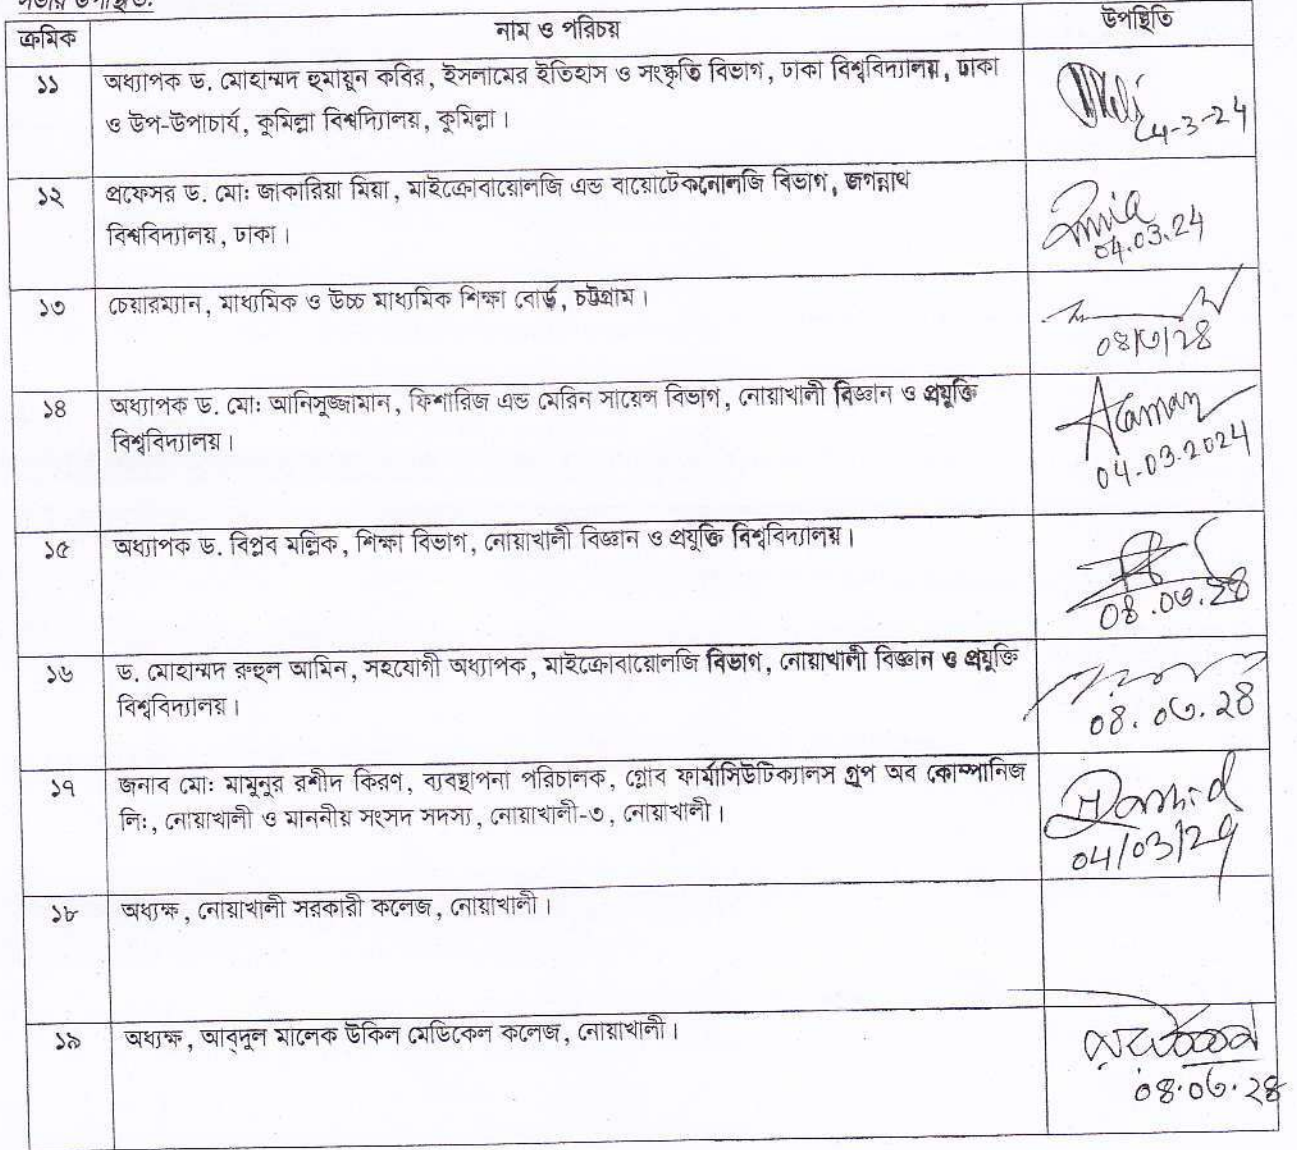 সভায় উপস্থিত:
ক্রমিক নাম ও পরিচয় উপস্থিতি
১১ অধ্যাপক ড. মোহাম্মদ হুমায়ুন কবির, ইসলামের ইতিহাস ও সংস্কৃতি বিভাগ, ঢাকা বিশ্ববিদ্যালয়, ঢাকা
ও উপ-উপাচার্য, কুমিল্লা বিশ্বদ্যিালয়, কুমিল্লা।
24-3-24
১২ প্রফেসর ড. মো: জাকারিয়া মিয়া, মাইক্রোবায়োলজি এন্ড বায়োটেকনোলজি বিভাগ, জগন্নাথ
বিশ্ববিদ্যালয়, ঢাকা।
04.03.24
১৩ চেয়ারম্যান, মাধ্যমিক ও উচ্চ মাধ্যমিক শিক্ষা বোর্ড, চট্টগ্রাম।
০৪/৩/২৪
১৪ অধ্যাপক ড. মো: আনিসুজ্জামান, ফিশারিজ এন্ড মেরিন সায়েন্স বিভাগ, নোয়াখালী বিজ্ঞান ও প্রযুক্তি
বিশ্ববিদ্যালয়।
04.03.2024
১৫ অধ্যাপক ড. বিপ্লব মল্লিক, শিক্ষা বিভাগ, নোয়াখালী বিজ্ঞান ও প্রযুক্তি বিশ্ববিদ্যালয়।
০৪.০৩.২৪
১৬ ড. মোহাম্মদ রুহুল আমিন, সহযোগী অধ্যাপক, মাইক্রোবায়োলজি বিভাগ, নোয়াখালী বিজ্ঞান ও প্রযুক্তি
বিশ্ববিদ্যালয়।
০৪.০৩.২৪
১৭ জনাব মো: মামুনুর রশীদ কিরণ, ব্যবস্থাপনা পরিচালক, গ্লোব ফার্মাসিউটিক্যালস গ্রুপ অব কোম্পানিজ
লি:, নোয়াখালী ও মাননীয় সংসদ সদস্য, নোয়াখালী-৩, নোয়াখালী।
04/03/24
১৮ অধ্যক্ষ, নোয়াখালী সরকারী কলেজ, নোয়াখালী।
১৯ অধ্যক্ষ, আব্দুল মালেক উকিল মেডিকেল কলেজ, নোয়াখালী।
০৪.০৩.২৪